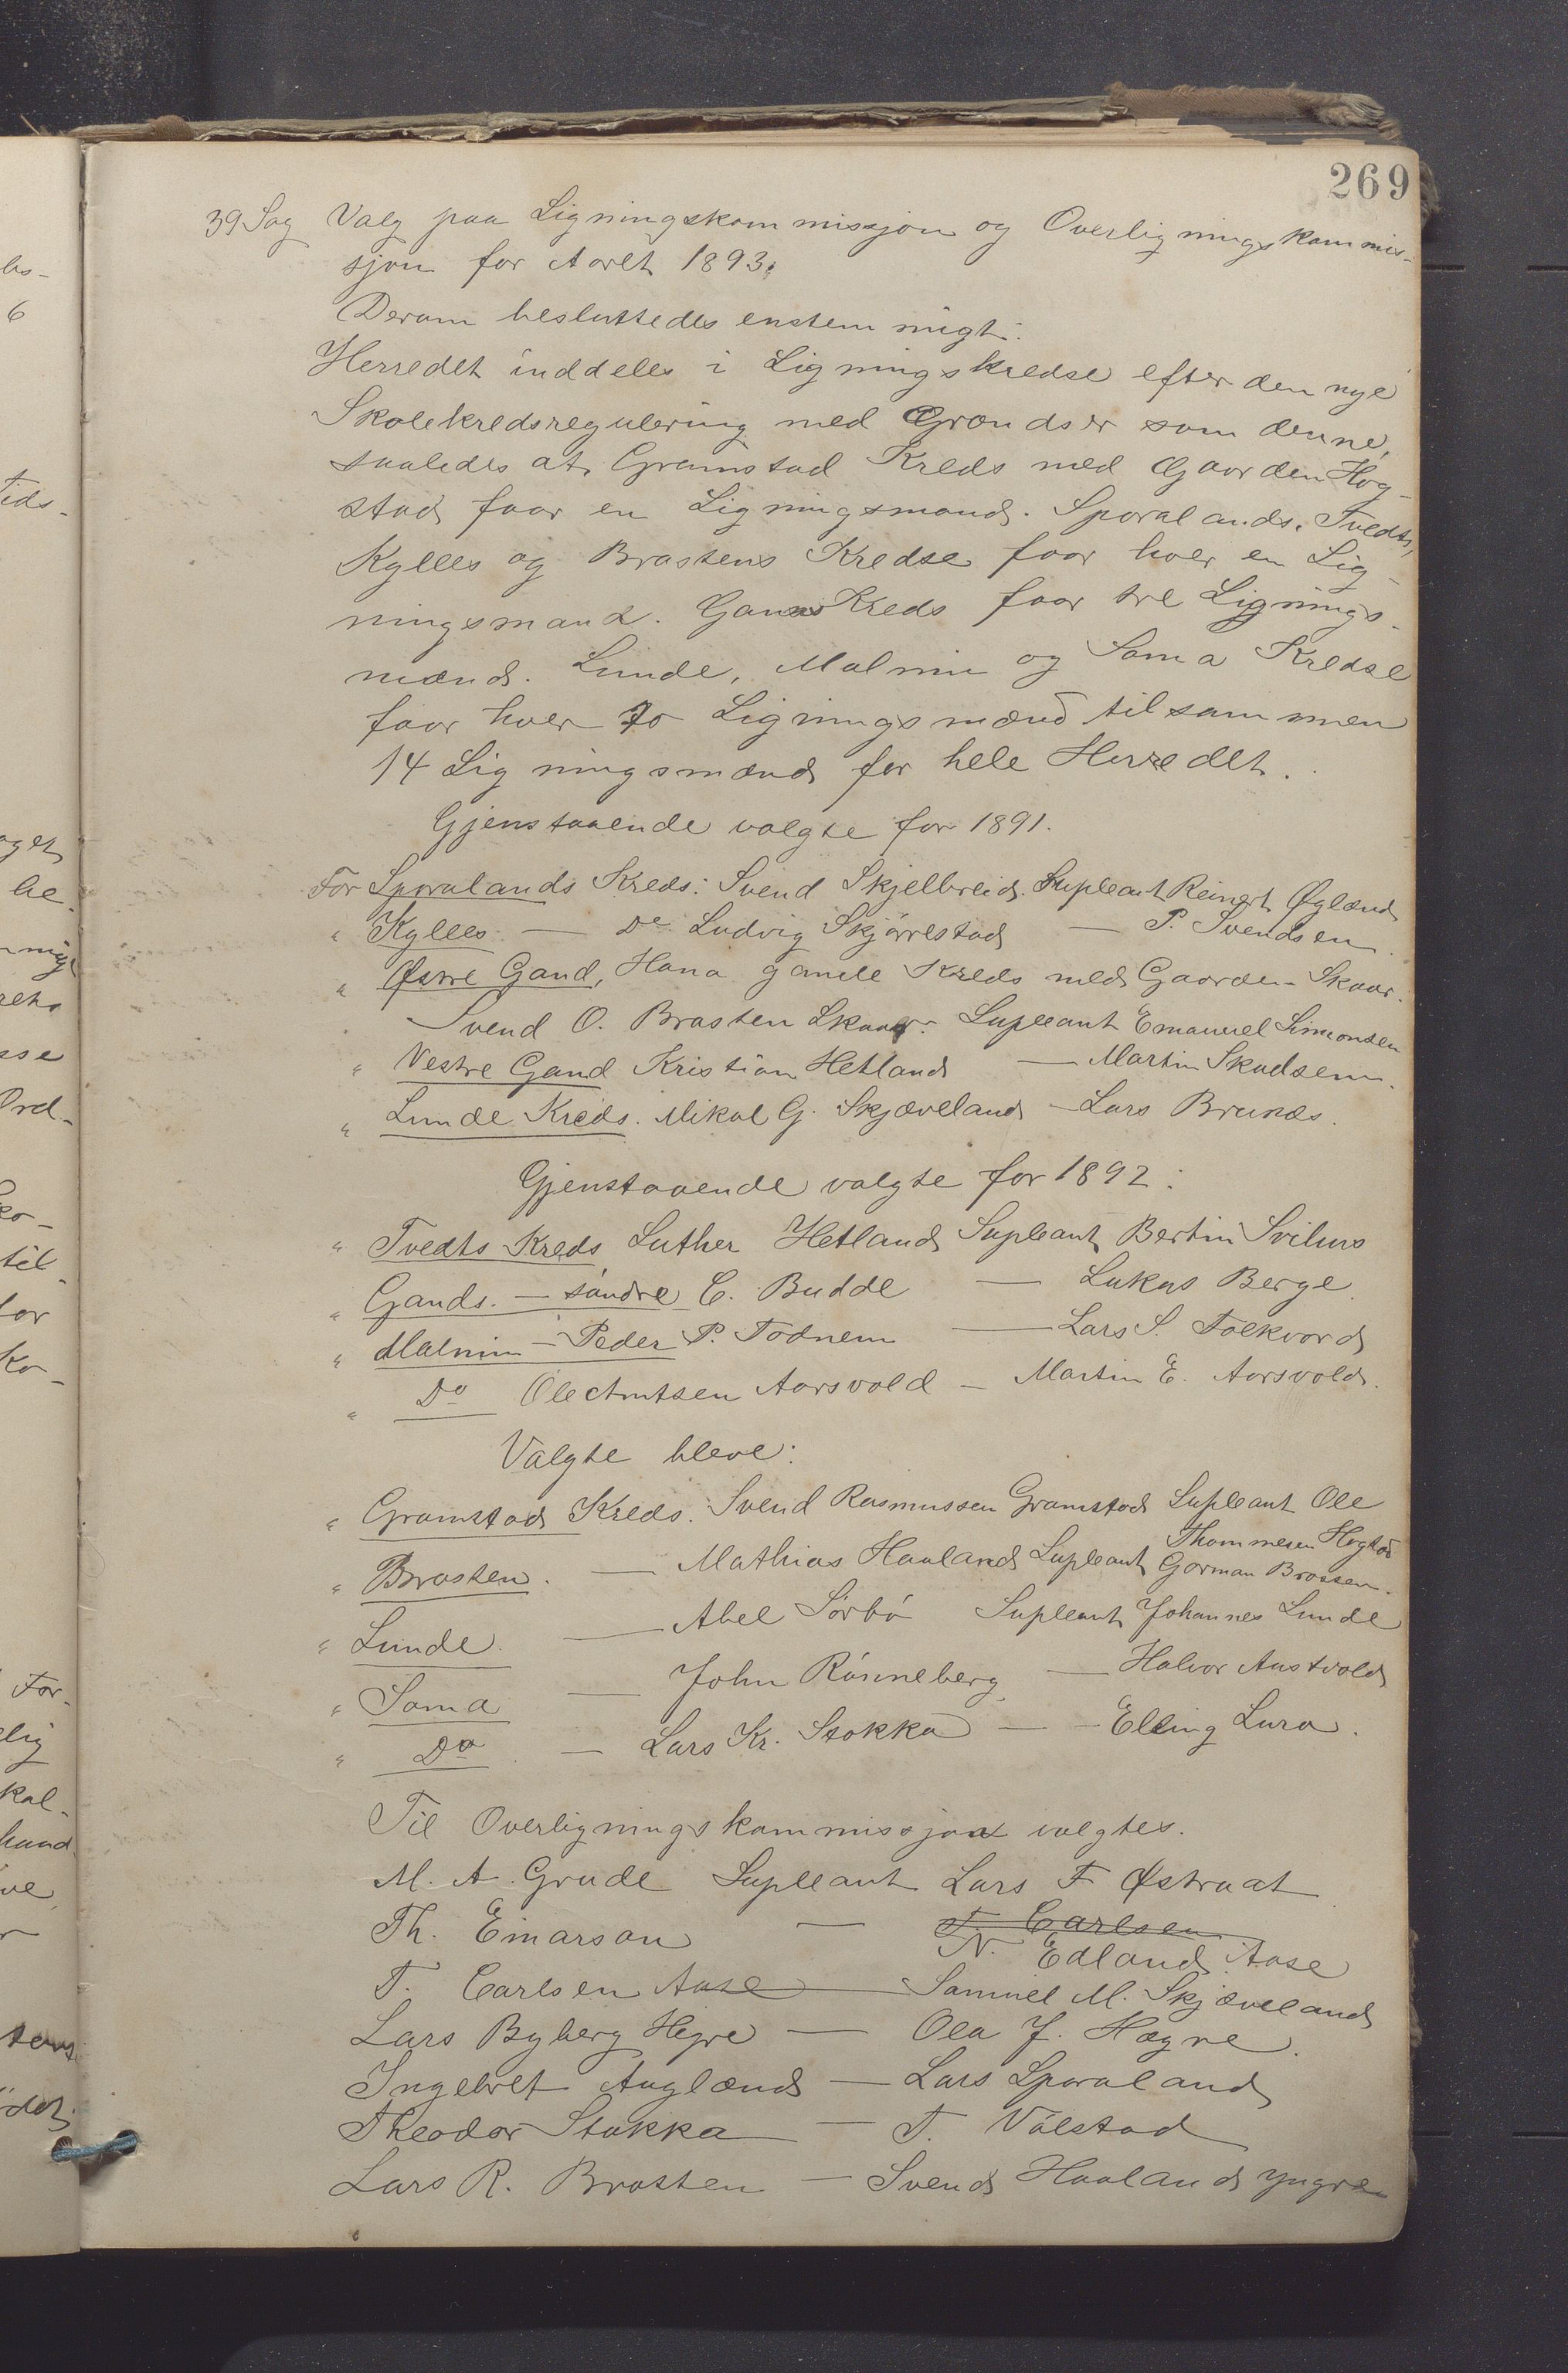 269
39 Sag Valg paa Ligningskommissjon og Overligningskommis-
sjon for Aaret 1893.
Derom besluttedes enstemmigt:
Herredet inddeles i Ligningskredse efter den nye
Skolekredsregulering med Grændser som denne,
saaledes at Gramstad Kreds med Gaarden Hog-
stad faar en Ligningsmand. Sporalands, Tvedts,
Kylles og Brastens Kredse faar hver en Lig-
ningsmand. Gans Kreds faar tre Lignings-
mænd. Lunde, Malmin og Soma Kredse
faar hver to Ligningsmænd tilsammen
14 Ligningsmænd for hele Herredet.
Gjenstaaende valgte for 1891.
For Sporalands Kreds: Svend Skjelbreid. Supleant Reinert Øglænd
" Kylles — Do Ludvig Skjørrestad — P. Svendsen
" Østre Gand, Hana gamle Kreds med Gaarden Skaar.
Svend O. Brasten Skaar. Supleant Emanuel Simonsen
" Vestre Gand Kristian Hetland — Martin Skadsem.
" Lunde Kreds. Mikal G. Skjæveland — Lars Brunæs.
Gjenstaaende valgte for 1892:
" Tvedts Kreds Luther Hetland Supleant Bertin Svihus
" Gands. — søndre C. Budde — Lukas Berge.
" Malmin — Peder P. Todnem — Lars S. Folkvord
" Do Ole Amtsen Aarsvold — Martin E. Aarsvold.
Valgte bleve:
" Gramstad Kreds. Svend Rasmussen Gramstad Supleant Ole
Thommesen Hogstad
" Brasten. — Mathias Haaland Supleant Gorman Brasten.
" Lunde. — Abel Sørbø Supleant Johannes Lunde
" Soma — John Rønneberg, — Halvor Austvold
" Do — Lars Kr. Stokka — Elling Lura.
Til Overligningskommissjon valgtes.
M. A. Grude Supleant Lars F Østraat
Th. Einarson — T. Carlsen
N. Edland Aase
T. Carlsen Aase — Samuel M. Skjæveland
Lars Byberg Høgre — Ola J. Høgre.
Ingebret Auglænd — Lars Sporaland
Theodor Stokka — T. Vølstad
Lars R. Brasten — Svend Haaland yngre